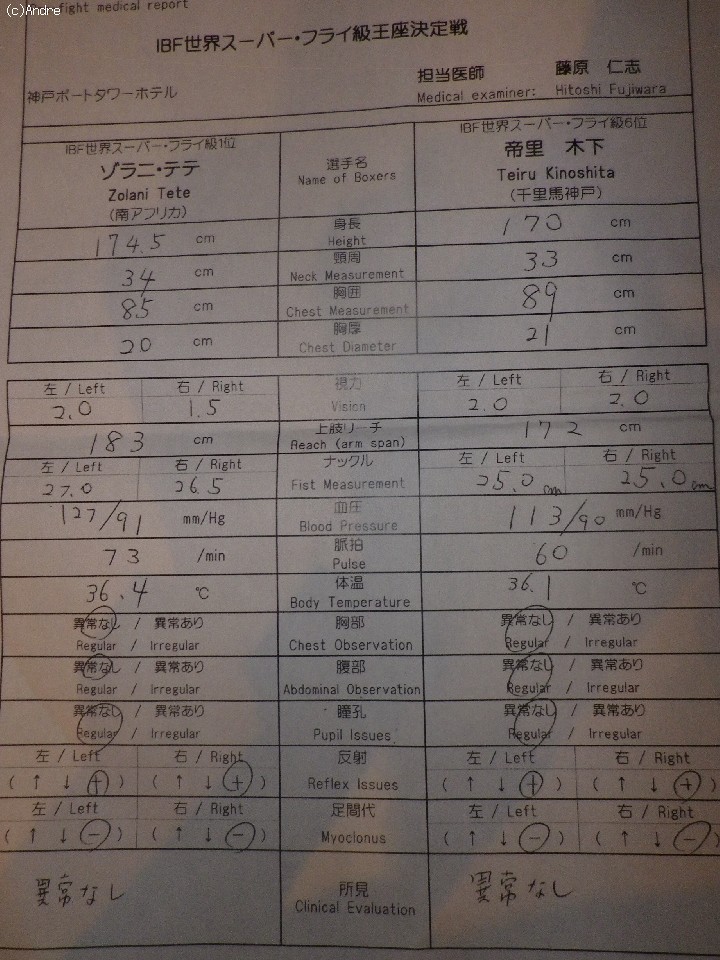 (c)Andre
fight medical report
IBF世界スーパー・フライ級王座決定戦
神戸ポートタワーホテル
担当医師 藤原 仁志
Medical examiner: Hitoshi Fujiwara
IBF世界スーパー・フライ級1位 選手名 IBF世界スーパー・フライ級6位
ゾラニ・テテ Name of Boxers 帝里 木下
Zolani Tete Teiru Kinoshita
(南アフリカ) (千里馬神戸)
174.5 cm 身長 170 cm
Height
34 cm 頸周 33 cm
Neck Measurement
85 cm 胸囲 89 cm
Chest Measurement
20 cm 胸厚 21 cm
Chest Diameter
左 / Left 右 / Right 視力 左 / Left 右 / Right
2.0 1.5 Vision 2.0 2.0
183 cm 上肢リーチ 172 cm
Reach (arm span)
左 / Left 右 / Right ナックル 左 / Left 右 / Right
27.0 26.5 Fist Measurement 25.0 cm 25.0 cm
127/91 mm/Hg 血圧 113/90 mm/Hg
Blood Pressure
73 /min 脈拍 60 /min
Pulse
36.4 ℃ 体温 36.1 ℃
Body Temperature
異常なし / 異常あり 胸部 異常なし / 異常あり
Regular / Irregular Chest Observation Regular / Irregular
異常なし / 異常あり 腹部 異常なし / 異常あり
Regular / Irregular Abdominal Observation Regular / Irregular
異常なし / 異常あり 瞳孔 異常なし / 異常あり
Regular / Irregular Pupil Issues Regular / Irregular
左 / Left 右 / Right 反射 左 / Left 右 / Right
( ↑ ↓ + ) ( ↑ ↓ + ) Reflex Issues ( ↑ ↓ + ) ( ↑ ↓ + )
左 / Left 右 / Right 足間代 左 / Left 右 / Right
( ↑ ↓ − ) ( ↑ ↓ − ) Myoclonus ( ↑ ↓ − ) ( ↑ ↓ − )
異常なし 所見 異常なし
Clinical Evaluation